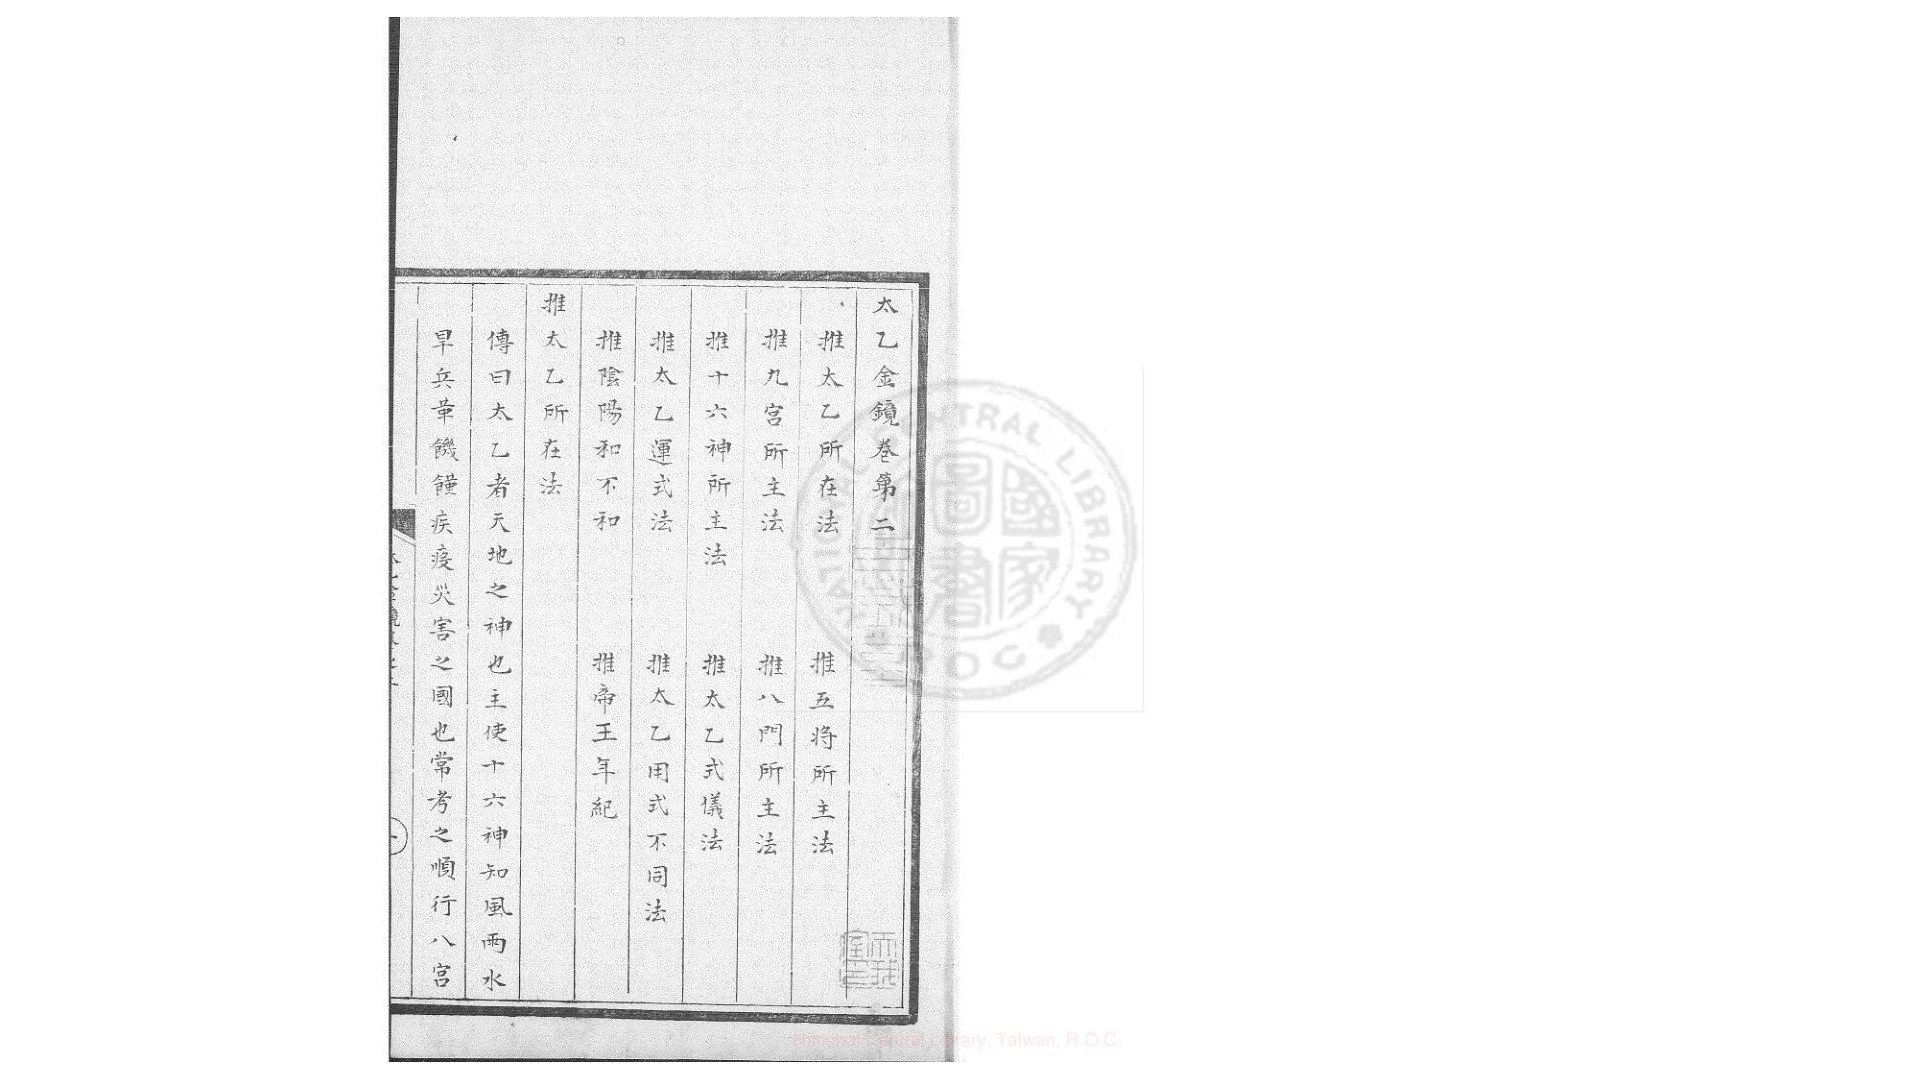 太乙金鏡卷第二
推太乙所在法　推五将所主法
推九宮所主法　推八門所主法
推十六神所主法　推太乙式儀法
推太乙運式法　推太乙用式不同法
推陰陽和不和　推帝王年紀
推太乙所在法
傳曰太乙者天地之神也主使十六神知風雨水
旱兵革饑饉疾疫災害之國也常考之順行八宮
NATIONAL CENTRAL LIBRARY
ROC
國家圖書
National Central Library, Taiwan, R.O.C.